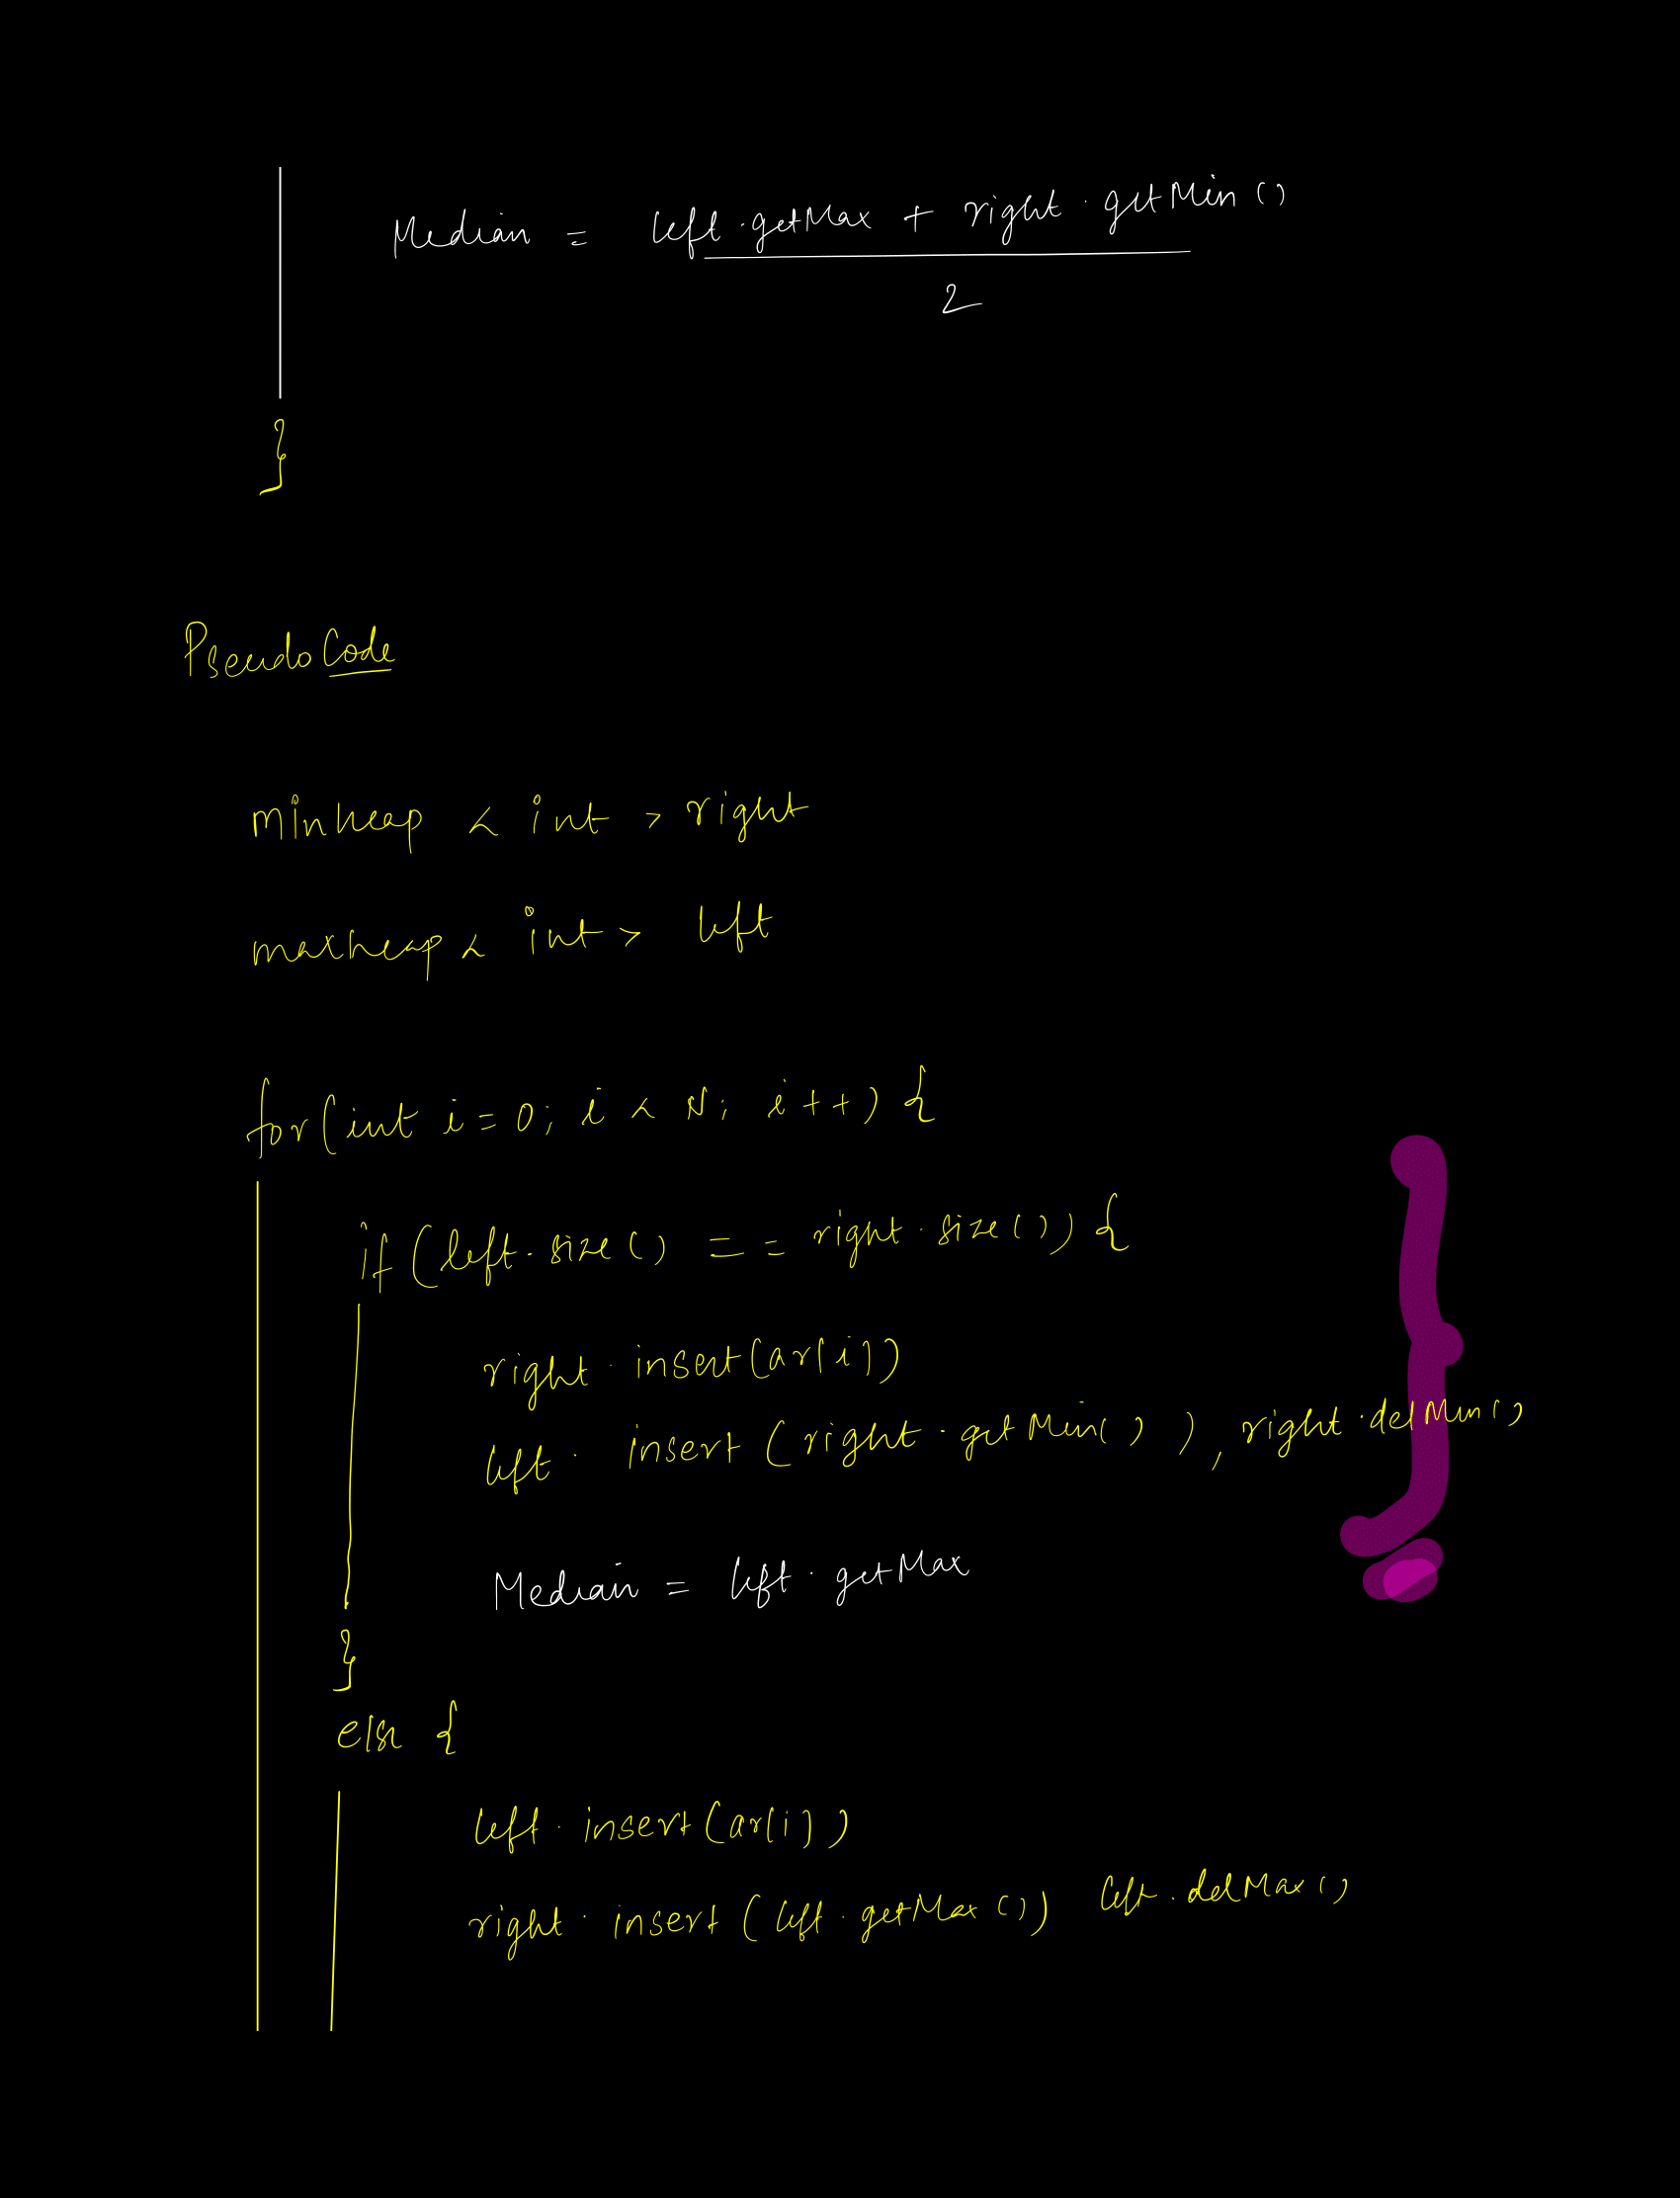 Median = left.getMax + right.getMin()
2
}
PseudoCode
minheap < int > right
maxheap < int > left
for(int i=0; i < N; i++) {
if (left.size() == right.size()) {
right.insert(ar[i])
left. insert (right.getMin()), right.delMin()
Median = left.getMax
}
else {
left.insert(ar[i])
right.insert (left.getMax()) left.delMax()